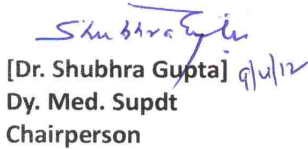 Shubhra Gupta
[Dr. Shubhra Gupta] 9/4/12
Dy. Med. Supdt
Chairperson